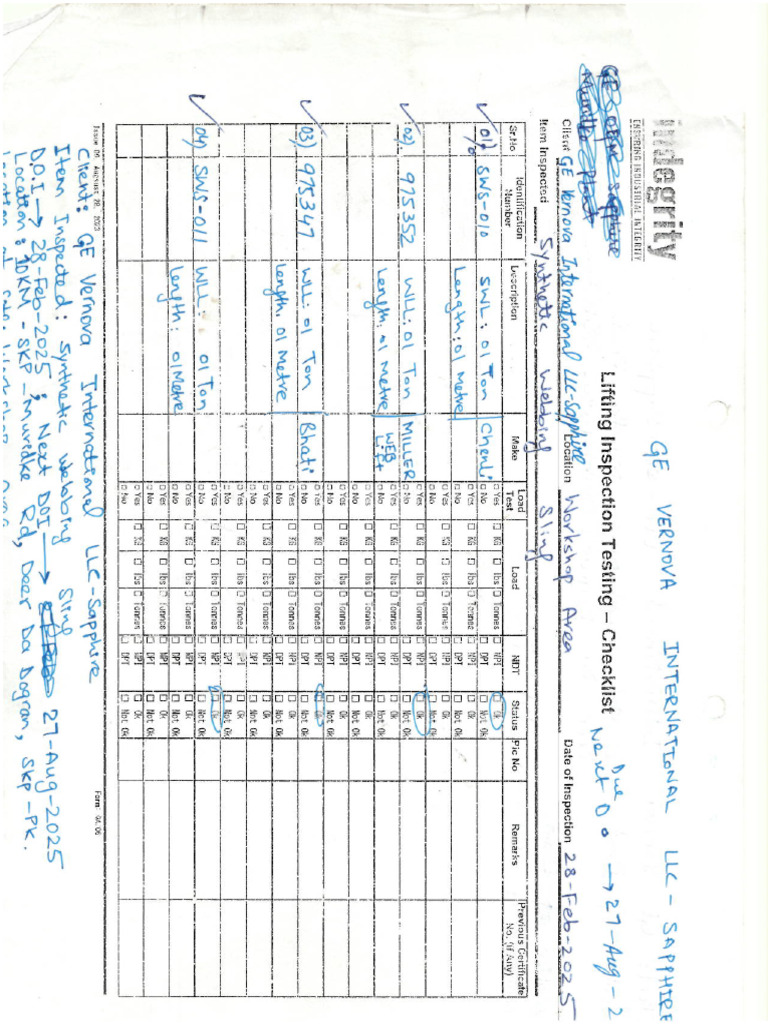 GE VERNOVA INTERNATIONAL LLC - SAPPHIRE
Indegrity
ENSURING INDUSTRIAL INTEGRITY
Lifting Inspection Testing – Checklist
Next Due → 27-Aug-2
Client GE Vernova International LLC-Sapphire Location Workshop Area Date of Inspection 28-Feb-2025
Item Inspected Synthetic Webbing Sling
Sr.No Identification Number Description Make Load Test Load NDT Status Pic No Remarks Previous Certificate No. (If Any)
01) SWS-010 SWL: 01 Ton Chenli □ Yes □ KG □ lbs □ Tonnes □ MPI □ Ok
□ No □ DPI □ Not Ok
Length: 01 Metre □ Yes □ KG □ lbs □ Tonnes □ MPI □ Ok
□ No □ DPI □ Not Ok
02). 975352 WLL: 01 Ton MILLER □ Yes □ KG □ lbs □ Tonnes □ MPI □ Ok
□ No □ DPI □ Not Ok
Length: 01 Metre WEB Lift □ Yes □ KG □ lbs □ Tonnes □ MPI □ Ok
□ No □ DPI □ Not Ok
□ Yes □ KG □ lbs □ Tonnes □ MPI □ Ok
□ No □ DPI □ Not Ok
03) 975347 WLL: 01 Ton Bhati □ Yes □ KG □ lbs □ Tonnes □ MPI □ Ok
□ No □ DPI □ Not Ok
Length: 01 Metre □ Yes □ KG □ lbs □ Tonnes □ MPI □ Ok
□ No □ DPI □ Not Ok
□ Yes □ KG □ lbs □ Tonnes □ MPI □ Ok
□ No □ DPI □ Not Ok
04) SWS-011 WLL: 01 Ton □ Yes □ KG □ lbs □ Tonnes □ MPI □ Ok
□ No □ DPI □ Not Ok
Length: 01 Metre □ Yes □ KG □ lbs □ Tonnes □ MPI □ Ok
□ No □ DPI □ Not Ok
□ Yes □ KG □ lbs □ Tonnes □ MPI □ Ok
□ No □ DPI □ Not Ok
Issue 00 August 20, 2023 Form
Client: GE Vernova International LLC-Sapphire
Item Inspected: Synthetic Webbing Sling
D.O.I → 28-Feb-2025 ; Next DOI → 27-Aug-2025
Location: 10KM - SKP - Muridke Rd, Deer Da Dogran, SKP-PK.